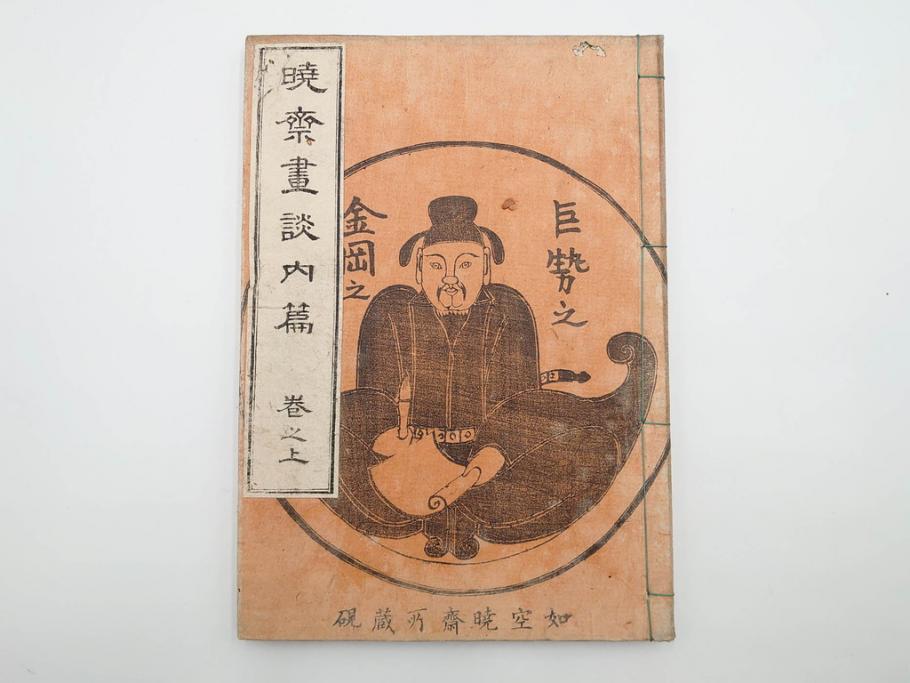 暁斎畫談内篇 巻之上
巨勢之
金岡之
如空暁齋所蔵硯